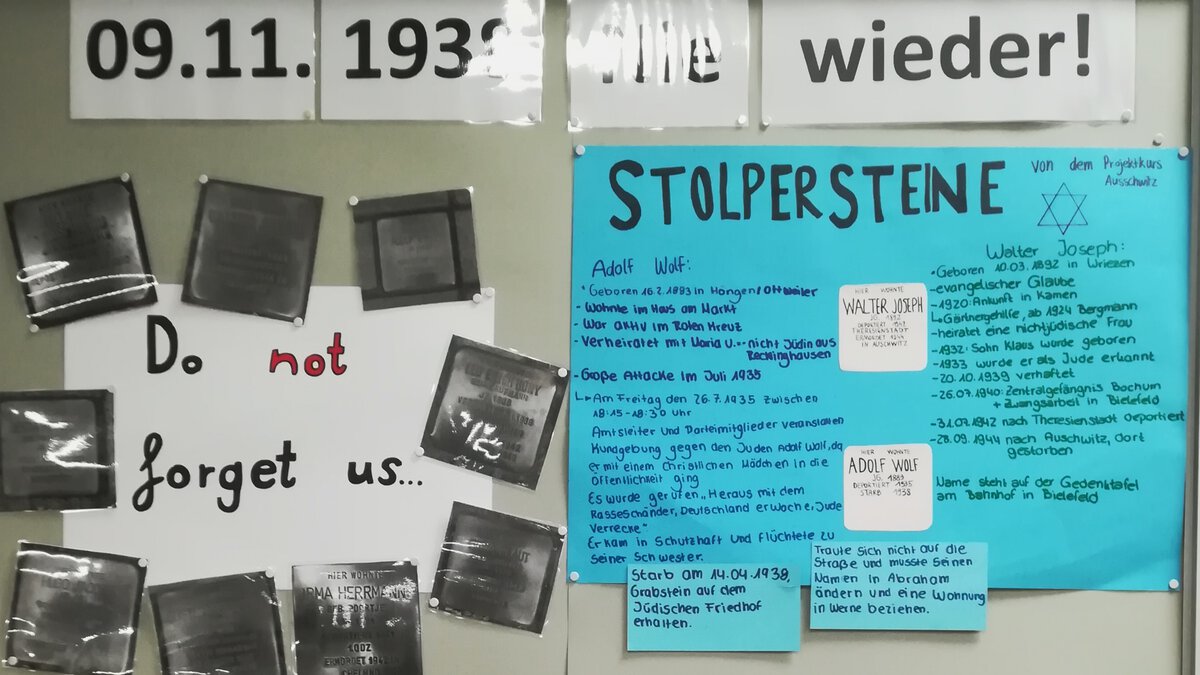 09.11. 1938 Nie wieder!
Do not
forget us...
HIER WOHNTE
IRMA HERRMANN
LODZ
ERMORDET 1942
CHELMNO
STOLPERSTEINE
von dem Projektkurs
Ausschwitz
Adolf Wolf:
* Geboren 16.2.1883 in Höngen/Ottweiler
- Wohnte im Haus am Markt
- War aktiv im Roten Kreuz
- Verheiratet mit Maria U.-- nicht Jüdin aus
Recklinghausen
- Große Attacke im Juli 1935
↳ Am Freitag den 26.7.1935 zwischen
18:15-18:30 Uhr
Amtsleiter und Parteimitglieder veranstalten
Kundgebung gegen den Juden Adolf Wolf, da
er mit einem Christlichen Mädchen in die
Öffentlichkeit ging
Es wurde gerufen „Heraus mit dem
Rasseschänder, Deutschland erwache, Jude
Verrecke"
Er kam in Schutzhaft und flüchtete zu
seiner Schwester.
Starb am 14.04.1938,
Grabstein auf dem
Jüdischen Friedhof
erhalten.
HIER WOHNTE
WALTER JOSEPH
JG. 1892
DEPORTIERT 1942
THERESIENSTADT
ERMORDET 1944
IN AUSCHWITZ
HIER WOHNTE
ADOLF WOLF
JG. 1883
DEPORTIERT 1935
STARB 1938
Walter Joseph:
- Geboren 10.03.1892 in Wriezen
- evangelischer Glaube
- 1920: Ankunft in Kamen
↳ Gärtnergehilfe, ab 1924 Bergmann
- heiratet eine nichtjüdische Frau
- 1932: Sohn Klaus wurde geboren
- 1933 wurde er als Jude erkannt
- 20.10.1939 verhaftet
- 26.07.1940: Zentralgefängnis Bochum
+ Zwangsarbeit in Bielefeld
- 31.07.1942 nach Theresienstadt deportiert
- 28.09.1944 nach Auschwitz, dort
gestorben
Name steht auf der Gedenktafel
am Bahnhof in Bielefeld
Traute sich nicht auf die
Straße und musste seinen
Namen in Abraham
ändern und eine Wohnung
in Werne beziehen.